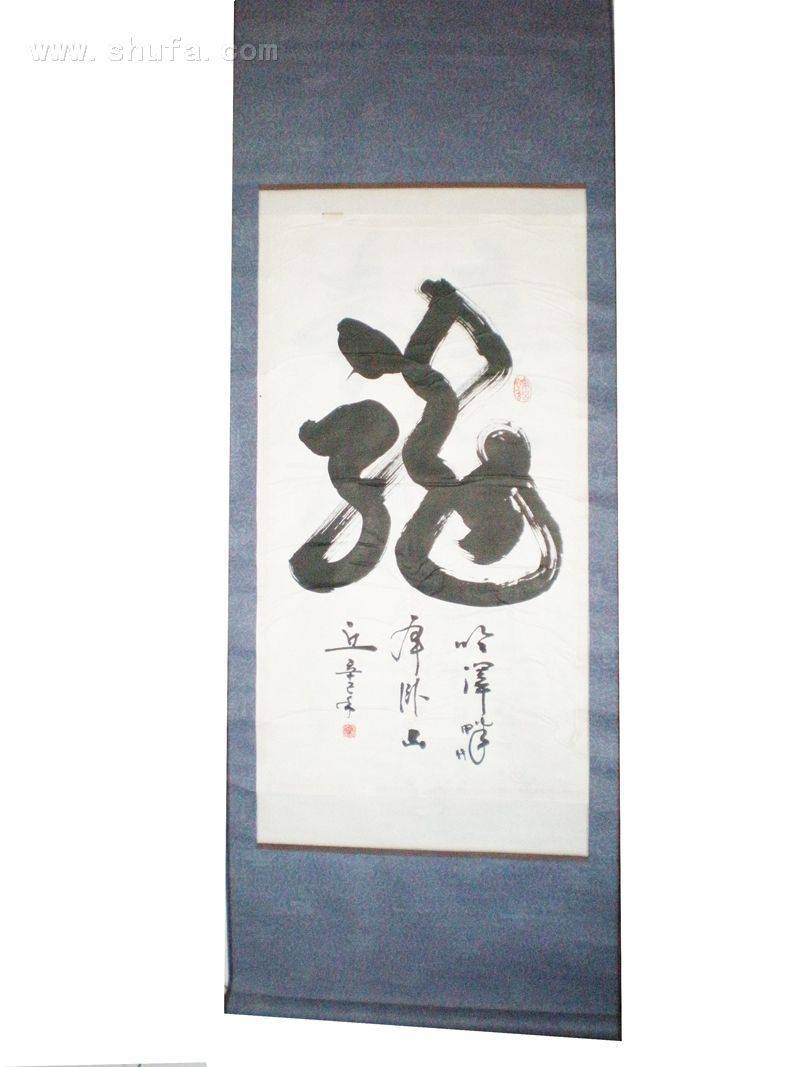 www.shufa.com
龍
吟澤畔
虎卧山
丘 辛巳年